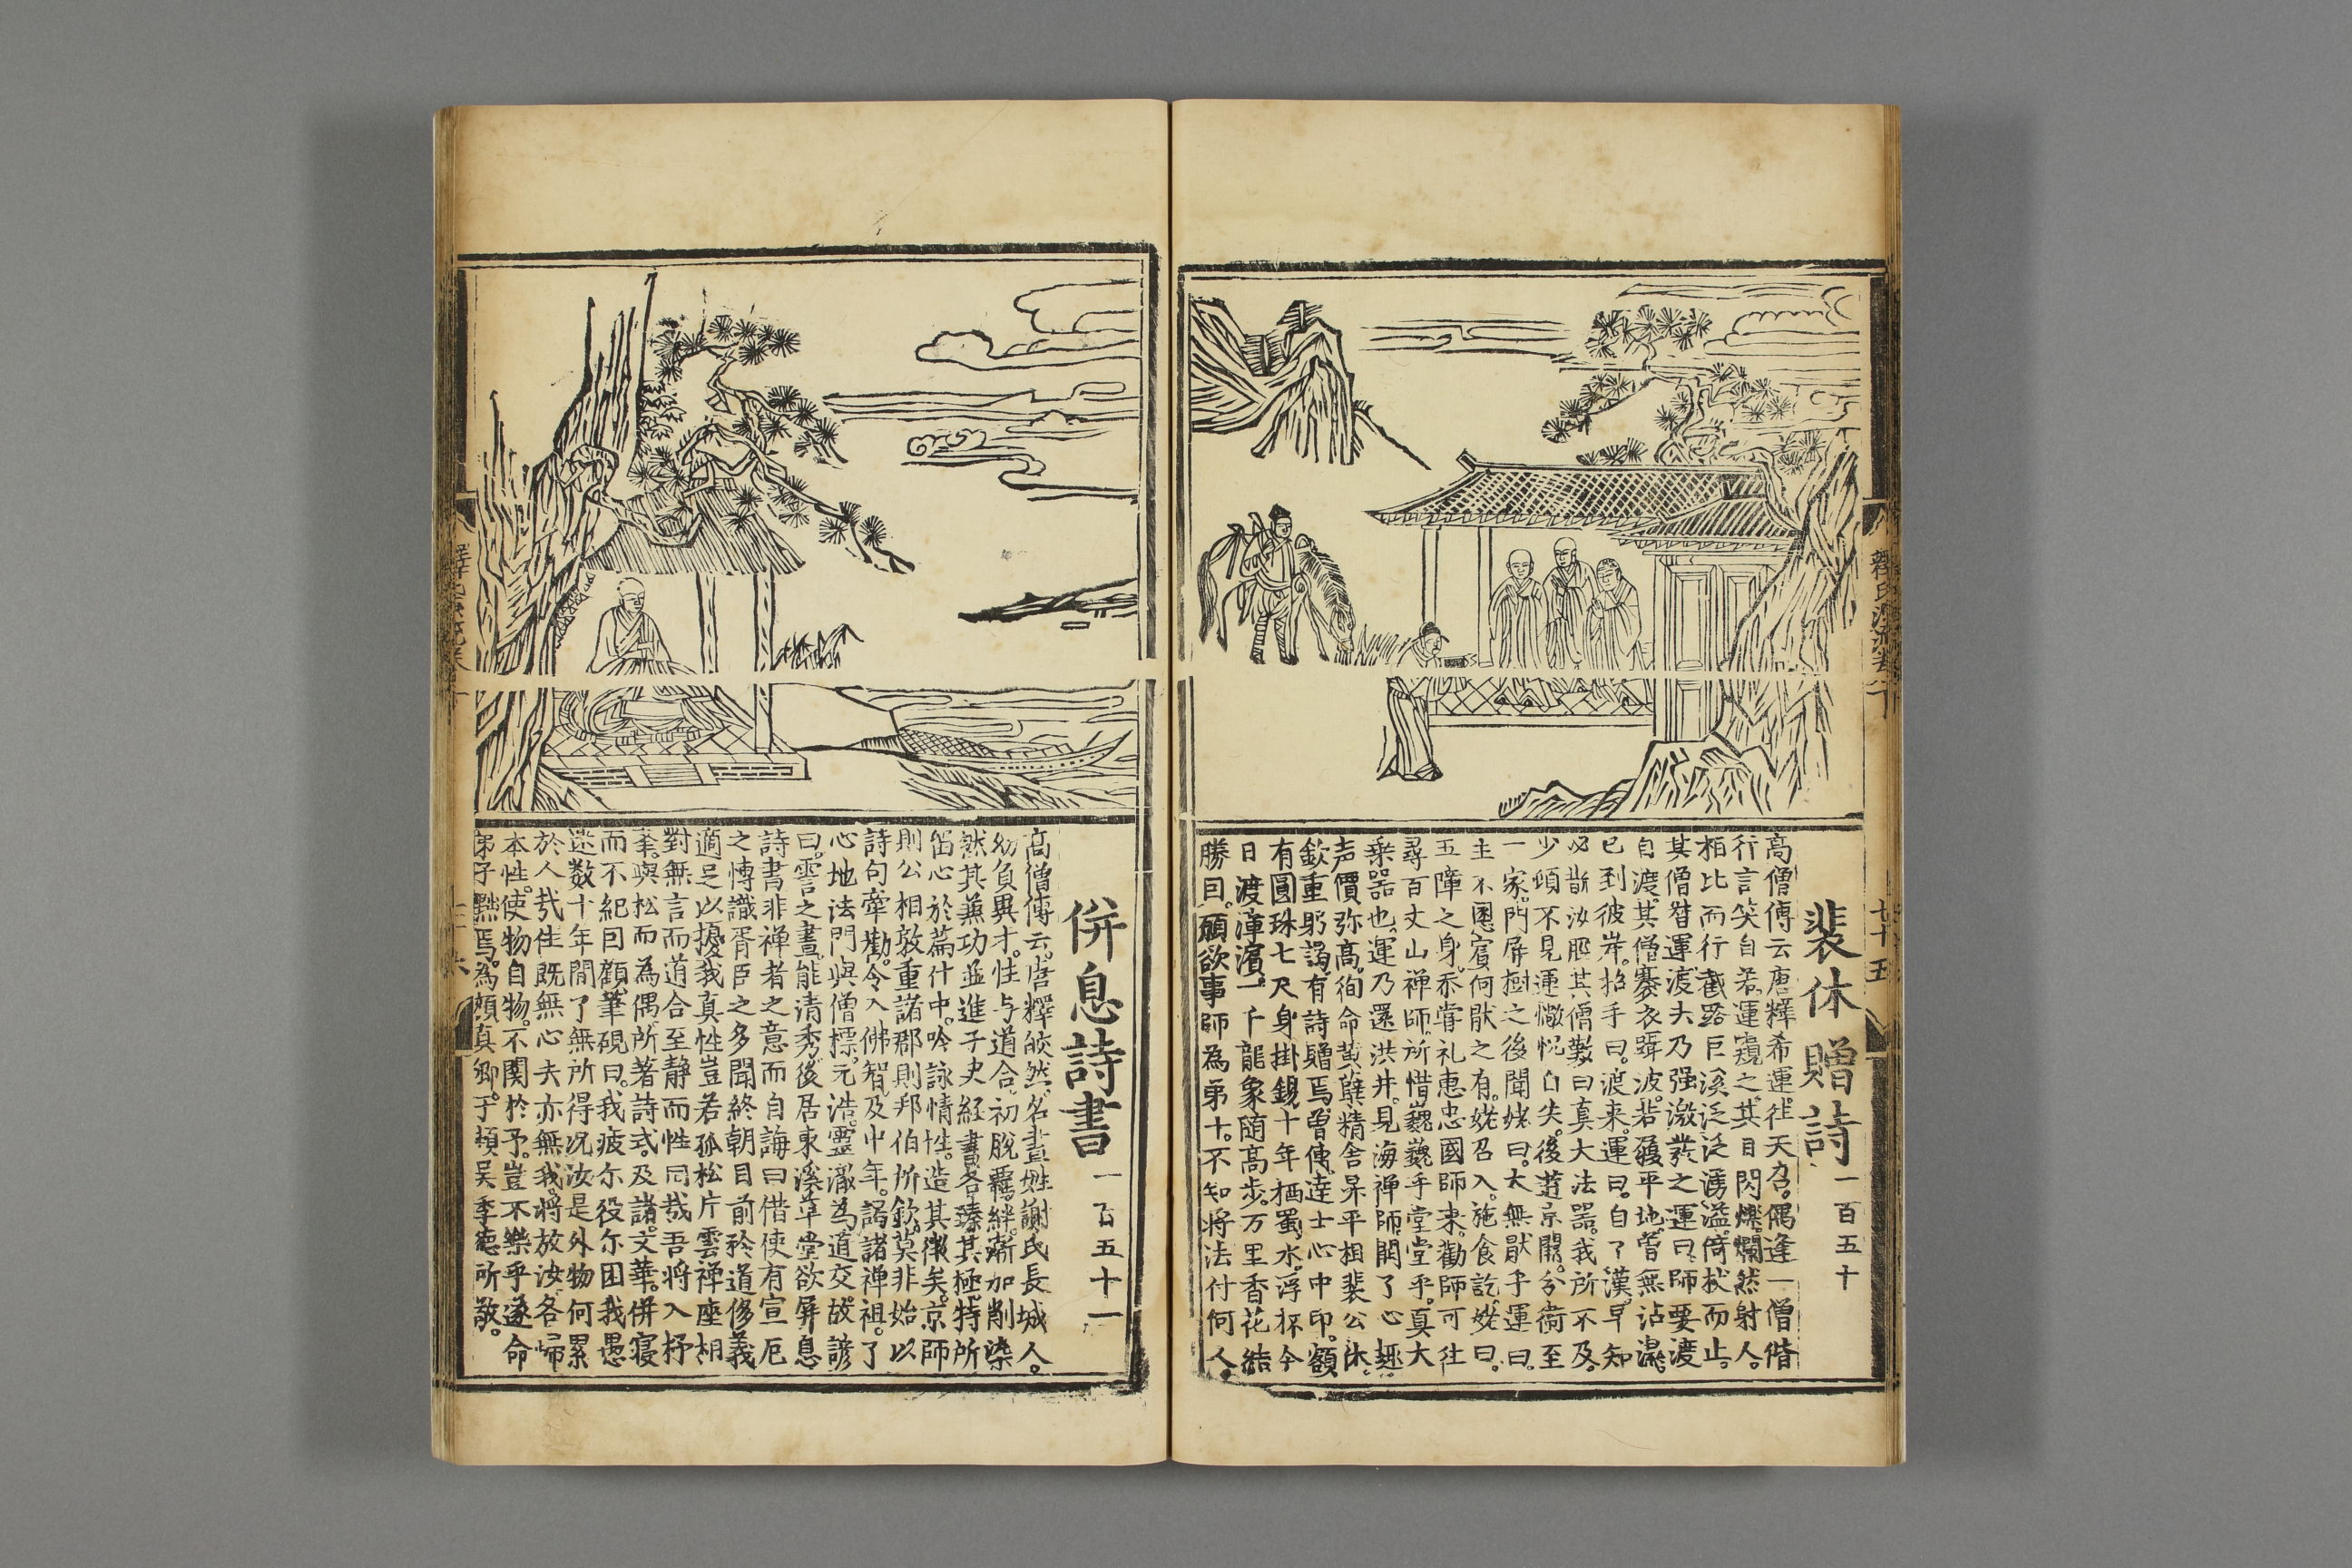 釋氏源流卷下
七十五
裴休贈詩 一百五十
高僧傳云唐釋希運往天台偶逢一僧偕
行言笑自若運窺之其目閃爍爛然射人
相比而行截路巨溪泛泛湧溢倚杖而止
其僧督運渡去乃强激發之運曰師要渡
自渡其僧褰衣躡波若履平地曾無沾濕
已到彼岸招手曰渡來運曰自了漢早知
必斮汝脛其僧歎曰真大法器我所不及
少頃不見運慨怳自失後遊京闕分衛至
一家門屏樹之後聞姥曰大無厭乎運曰
主不慁賓何厭之有姥召入施食訖姥曰
五障之身忝甞礼惠忠國師來勸師可往
尋百丈山禅師所惜巍巍乎堂堂乎真大
乗器也運乃還洪井見海禅師開了心趣
声價弥高徇命黄蘗精舍杲平相裴公休
欽重躬謁有詩贈焉曽傳達士心中印額
有圓珠七尺身掛錫十年栖蜀水浮杯今
日渡漳濵一千龍象随高步万里香花結
勝曰願欲事師為弟十不知将法付何人
併息詩書 一百五十一
高僧傳云唐釋皎然名晝姓謝氏長城人
幼負異才性与道合初脫羈絆漸加削染
然其兼功並進子史経書各臻其極特所
留心於篇什中吟詠情性造其微矣京師
則公相敦重諸郡則邦伯所欽莫非始以
詩句牽勸令入佛智及中年謁諸禅祖了
心地法門與僧標元浩靈澈為道交故諺
曰霅之晝能清秀後居東溪草堂欲屏息
詩書非禅者之意而自誨曰借使有宣厄
之慱識胥臣之多聞終朝目前矜道侈義
適足以擾我真性豈若孤松片雲禅座相
對無言而道合至静而性同哉吾将入杼
峯與松而為偶所著詩式及諸文華併寝
而不紀囙顧筆硯曰我疲尓役尓困我愚
迷数十年間了無所得况汝是外物何累
於人㢤住既無心去亦無我将放汝各歸
本性使物自物不関於予豈不樂乎遂命
弟子黜焉為顔真卿于頔吴季德所敬